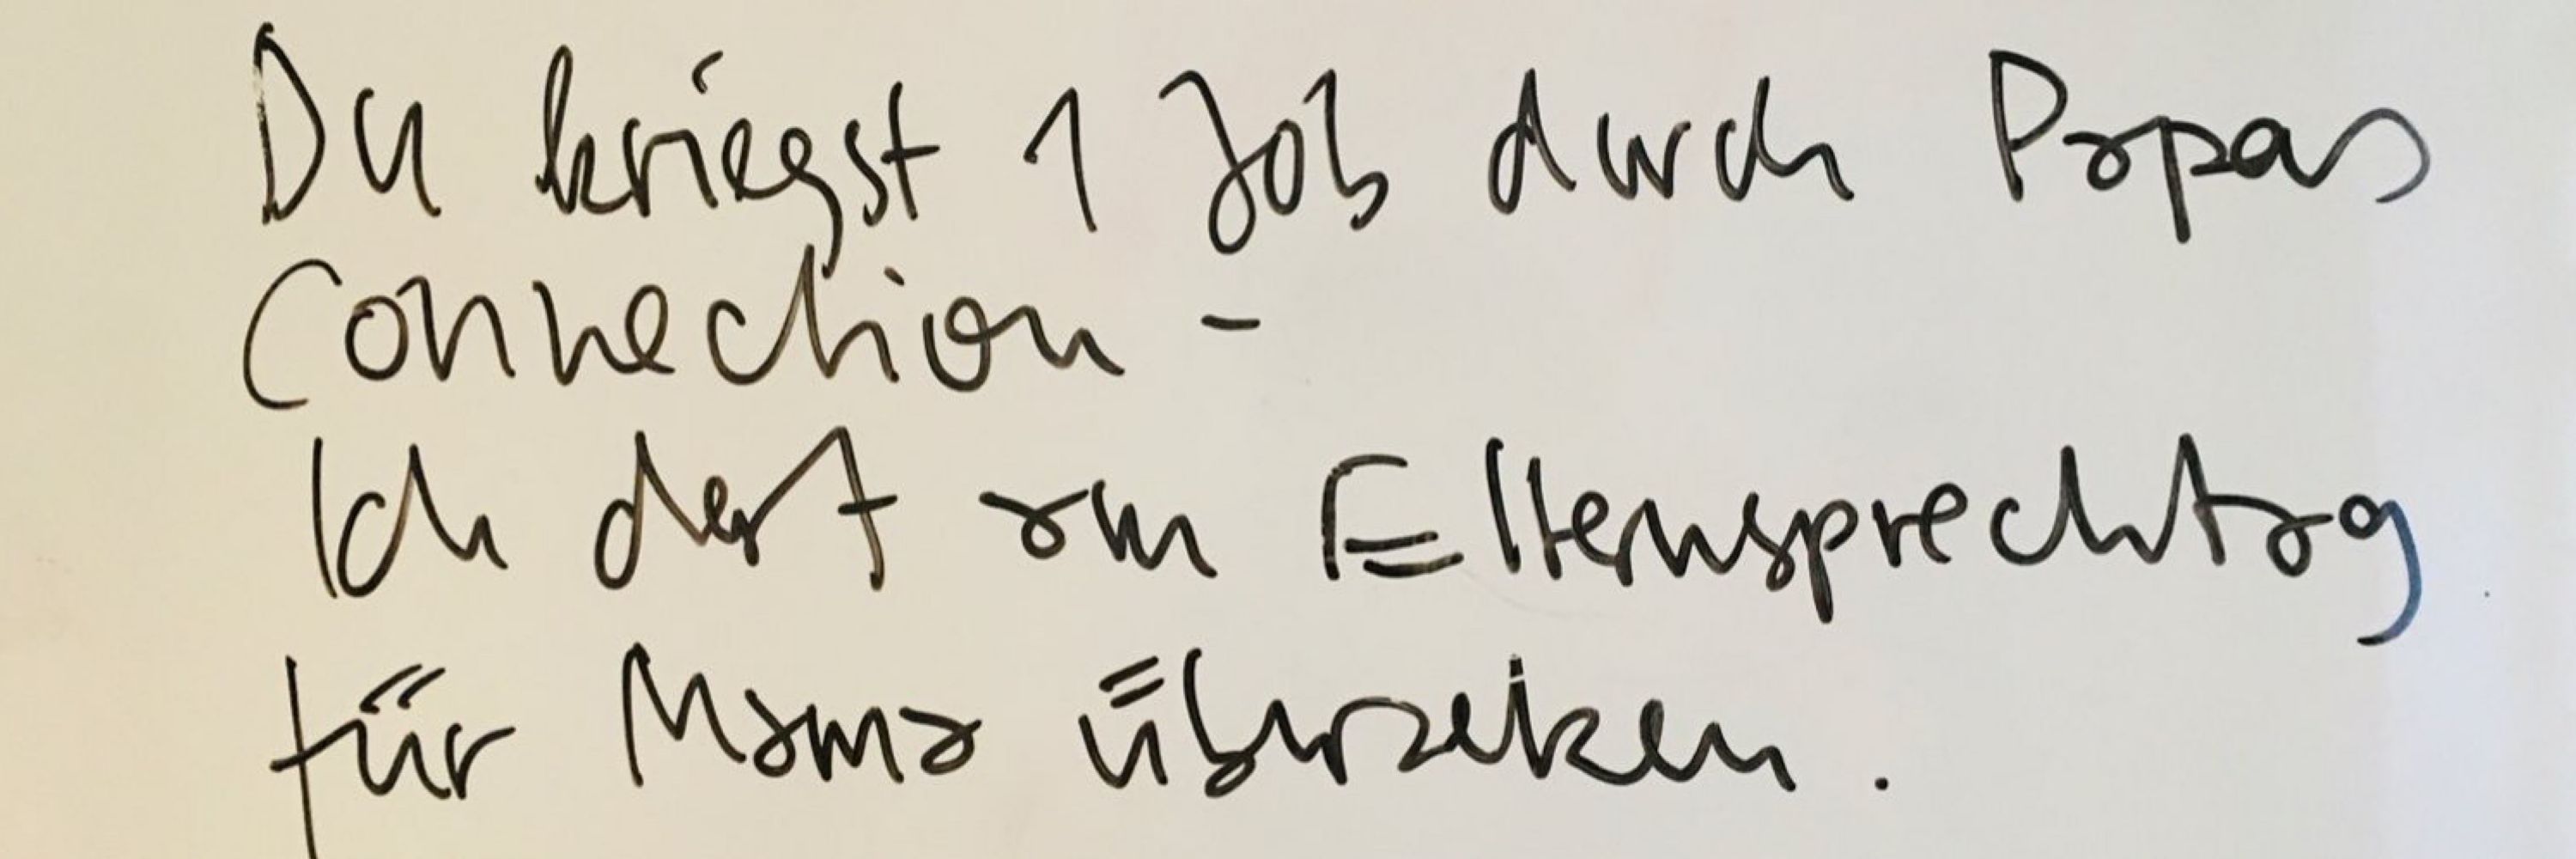 Du kriegst 1 Job durch Papas
Connection -
Ich derf am Elternsprechtag
für Mama überseken.